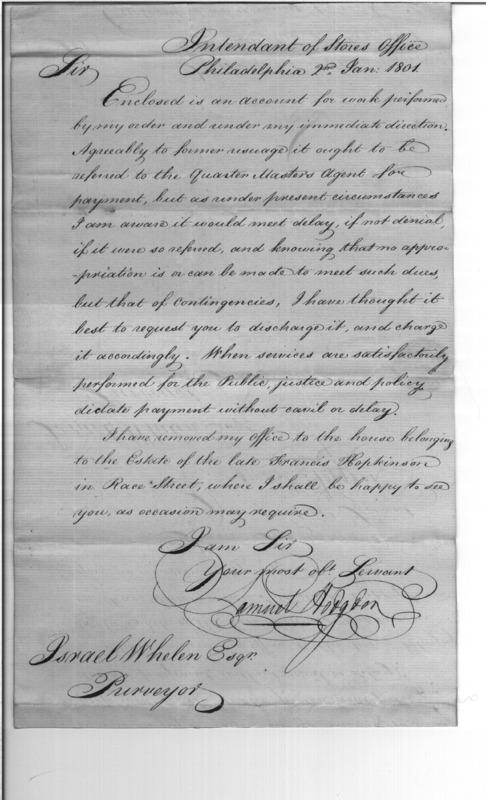 Intendant of Stores Office
Sir
Philadelphia 2nd Jan: 1801.
Enclosed is an account for work performed
by my order and under my immediate direction.
Agreeably to former usuage it ought to be
referred to the Quarter Masters Agent for
payment, but as under present circumstances
I am aware it would meet delay, if not denial,
if it were so referred, and knowing that no appro-
-priation is or can be made to meet such dues,
but that of contingencies, I have thought it
best to request you to discharge it, and charge
it accordingly. When services are satisfactorily
performed for the Public, justice and policy
dictate payment without cavil or delay.
I have removed my Office to the house belonging
to the Estate of the late Francis Hopkinson
in Race Street, where I shall be happy to see
you, as occasion may require.
I am Sir
Your most obt. Servant
Samuel Hodgdon
Israel Whelen Esqr.
Purveyor